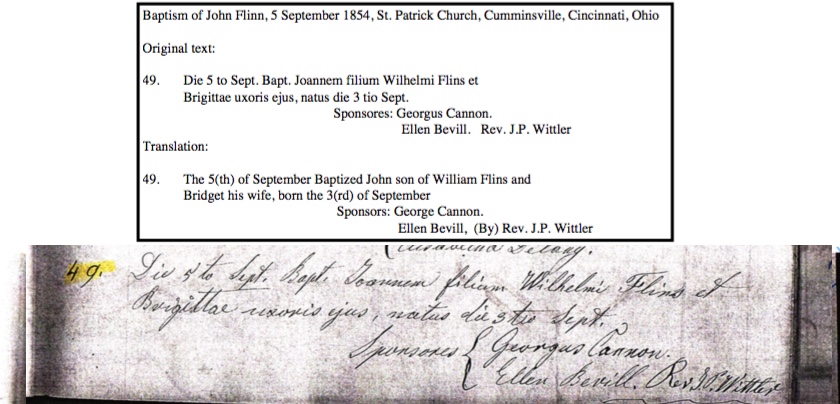 Baptism of John Flinn, 5 September 1854, St. Patrick Church, Cumminsville, Cincinnati, Ohio
Original text:
49. Die 5 to Sept. Bapt. Joannem filium Wilhelmi Flins et
Brigittae uxoris ejus, natus die 3 tio Sept.
Sponsores: Georgus Cannon.
Ellen Bevill. Rev. J.P. Wittler
Translation:
49. The 5(th) of September Baptized John son of William Flins and
Bridget his wife, born the 3(rd) of September
Sponsors: George Cannon.
Ellen Bevill, (By) Rev. J.P. Wittler
49. Die 5 to Sept. Bapt. Joannem filium Wilhelmi Flins et
Brigittae uxoris ejus, natus die 3 tio Sept.
Sponsores { Georgus Cannon.
Ellen Bevill. Rev J.P. Wittler